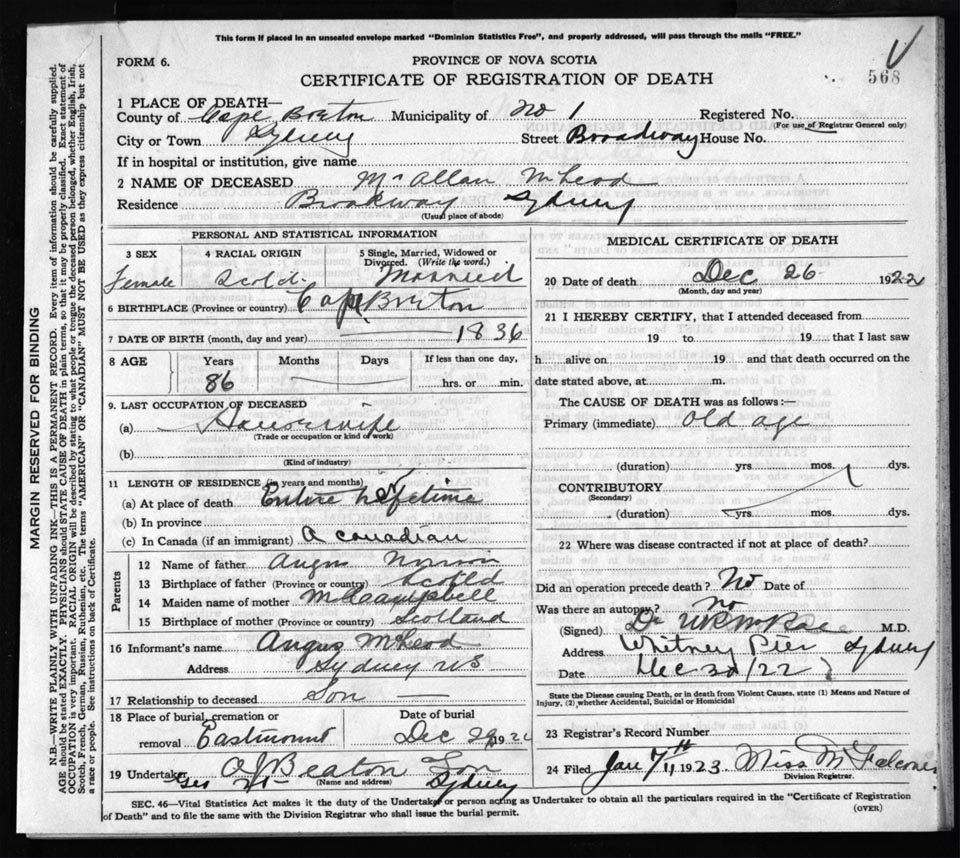 This form if placed in an unsealed envelope marked "Dominion Statistics Free", and properly addressed, will pass through the mails "FREE."
FORM 6.
PROVINCE OF NOVA SCOTIA
568
CERTIFICATE OF REGISTRATION OF DEATH
1 PLACE OF DEATH—
County of Cape Breton Municipality of No 1 Registered No.
(For use of Registrar General only)
City or Town Sydney Street Broadway House No.
If in hospital or institution, give name
2 NAME OF DECEASED Mrs Allan McLeod
Residence Brookway Sydney
(Usual place of abode)
PERSONAL AND STATISTICAL INFORMATION
3 SEX Female
4 RACIAL ORIGIN Scotch
5 Single, Married, Widowed or Divorced. (Write the word.) Married
6 BIRTHPLACE (Province or country) Cape Breton
7 DATE OF BIRTH (month, day and year) 1836
8 AGE Years Months Days If less than one day,
86 hrs. or min.
9. LAST OCCUPATION OF DECEASED
(a) Housewife
(Trade or occupation or kind of work)
(b)
(Kind of industry)
11 LENGTH OF RESIDENCE (in years and months)
(a) At place of death Entire Lifetime
(b) In province
(c) In Canada (if an immigrant) A Canadian
Parents
12 Name of father Angus
13 Birthplace of father (Province or country) Scotld
14 Maiden name of mother Campbell
15 Birthplace of mother (Province or country) Scotland
16 Informant's name Angus McLeod
Address Sydney NS
17 Relationship to deceased Son
18 Place of burial, cremation or removal Eastmount
Date of burial Dec 29 1922
19 Undertaker A J Beaton Son
(Name and address) Sydney
MEDICAL CERTIFICATE OF DEATH
20 Date of death Dec 26 1922
(Month, day and year)
21 I HEREBY CERTIFY, that I attended deceased from
19 to 19 that I last saw
h alive on 19 and that death occurred on the
date stated above, at m.
The CAUSE OF DEATH was as follows:—
Primary (immediate) Old age
(duration) yrs. mos. dys.
CONTRIBUTORY
(Secondary)
(duration) yrs. mos. dys.
22 Where was disease contracted if not at place of death?
Did an operation precede death? No Date of
Was there an autopsy? no
(Signed) Dr M.D.
Address Whitney Pier Sydney
Date Dec 30/22
State the Disease causing Death, or in death from Violent Causes, state (1) Means and Nature of
Injury, (2) whether Accidental, Suicidal or Homicidal
23 Registrar's Record Number
24 Filed Jan 7th 1923 Miss M Falconer
Division Registrar.
SEC. 46—Vital Statistics Act makes it the duty of the Undertaker or person acting as Undertaker to obtain all the particulars required in the "Certificate of Registration
of Death" and to file the same with the Division Registrar who shall issue the burial permit.
(OVER)
MARGIN RESERVED FOR BINDING
N.B.—WRITE PLAINLY WITH UNFADING INK—THIS IS A PERMANENT RECORD. Every item of information should be carefully supplied.
AGE should be stated EXACTLY. PHYSICIANS should STATE CAUSE OF DEATH in plain terms, so that it may be properly classified. Exact statement of
OCCUPATION is very important. RACIAL ORIGIN will be described by stating to what people or tongue the deceased person belonged, whether English, Irish,
Scotch, French, German, Russian, Ruthenian, etc. The terms "AMERICAN" OR "CANADIAN" MUST NOT BE USED as they express citizenship but not
a race or people. See instructions on back of Certificate.